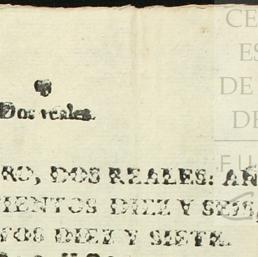 Dos reales.
RO, DOS REALES: AÑ
IENTOS DIEZ Y SEIS,
TOS DIEZ Y SIETE.
CE
ES
DE
DE
FU